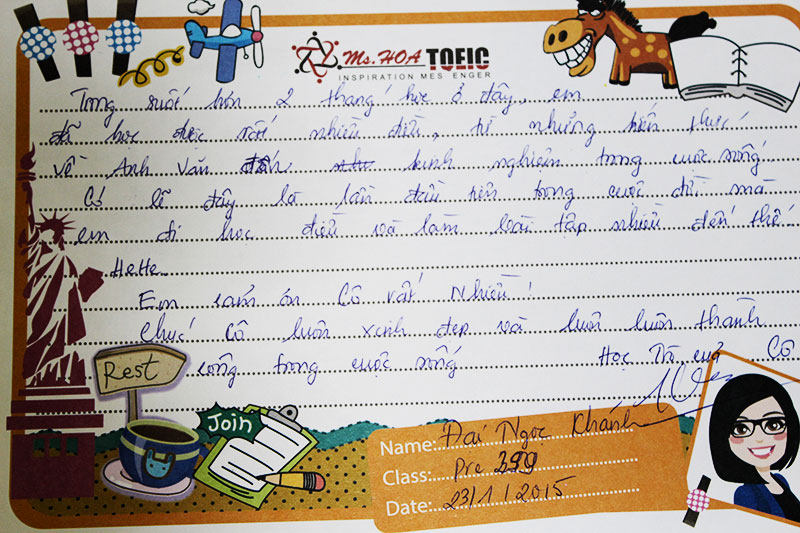 Ms. HOA TOEIC
INSPIRATION MES ENGER
Trong suốt hơn 2 tháng học ở đây, em
đã học được rất nhiều điều, từ những kiến thức
về Anh văn đến kinh nghiệm trong cuộc sống
Có lẽ đây là lần đầu tiên trong cuộc đời mà
em đi học điều và làm bài tập nhiều đến thế.
HeHe
Em cám ơn Cô rất Nhiều!
Chúc Cô luôn xinh đẹp và luôn luôn thành
công trong cuộc sống Học Trò của Cô
Rest
Join
Name: Đai Ngọc Khánh
Class: Pre 299
Date: 23/1/2015